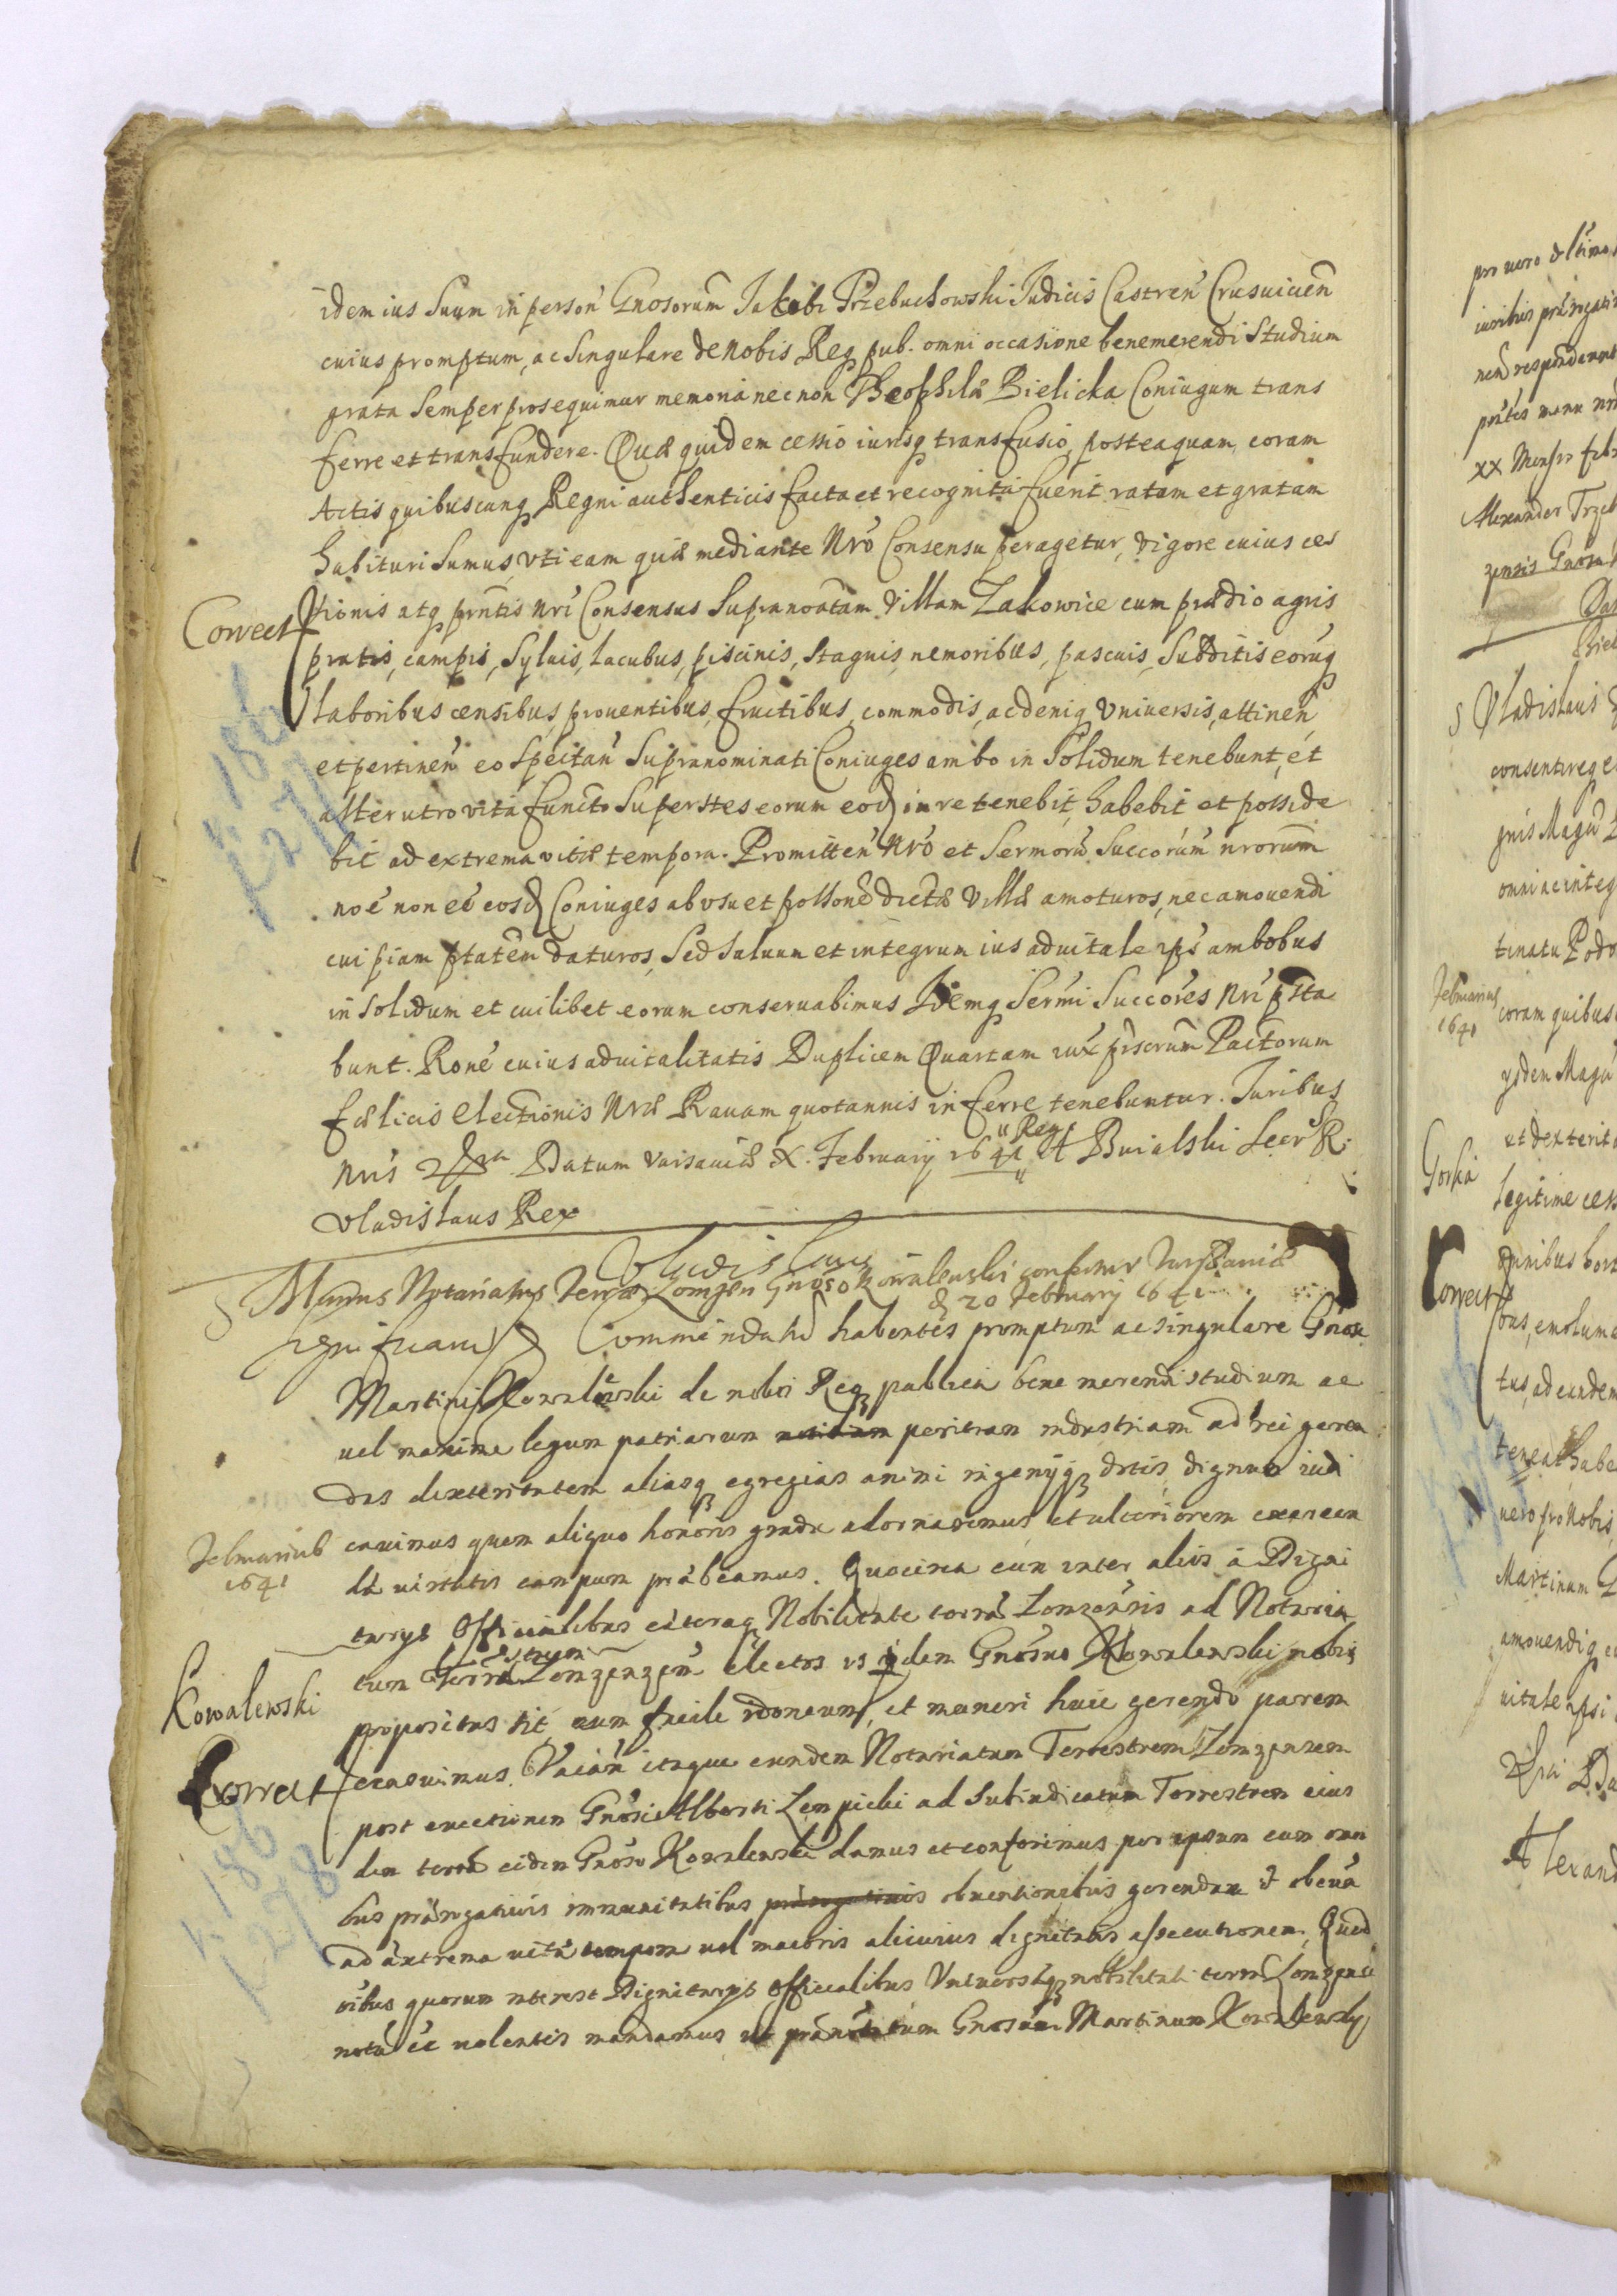 idem ius suum in person̄ Gnosorum Jakobi Przebuchowski Judicis Castren̄ Crusuicien̄
cuius promptum, ac singulare de nobis Reqꝫ pub. omni occasione benemerendi studium
grata semper prosequimur memoria nec non Theophilæ Bielicka Coniugum trans
ferre et transfundere. Quæ quidem cessio iurisqꝫ transfusio, posteaquam, coram
Actis quibuscunqꝫ Regni authenticis facta et recognita fuerit, ratam et gratam
habituri sumus, vti eam quæ mediante Nrō Consensu peragetur, vigore cuius ces
sionis atqꝫ pn̄tis nrī Consensus supranoātam villam Zakowice cum prædio agris
Correct
pratis, campis, syluis, lacubus, piscinis, stagnis, nemoribus, pascuis, subditis eorūqꝫ
laboribus censibus, prouentibus, fructibus, commodis, ac deniqꝫ vniuersis, attinen̄
et pertinen̄ eo spectan̄ supranominati Coniuges ambo in solidum tenebunt, et
alterutro vita functo superstes eorum eod in re tenebit, habebit et posside
bit ad extrema vitæ tempora. Promitten̄ Nrō et Sermorū Succorūm nrorum
noē non eē eosd Coniuges ab vsu et possonē dictæ villæ amoturos, nec amouendi
cuipiam ptatēm daturos, sed saluum et integrum ius aduitale ipīs ambobus
in solidum et cuilibet eorum conseruabimus Idemqꝫ Sermi Succores Nrī psta
bunt. Ronē cuius aduitalitatis Duplicem Quartam iux prscrūm Pactorum
fælicis electionis Nræ Rauam quotannis inferre tenebuntur. Juribus
Reg
Nris Datum varsauiæ X. February 1641 A Buialski Secr R.
Vladislaus Rex
Vladislaus
Munus Notariatus Terræ Lomzen Gnoso Kowalewski confertur Varsauiæ
d 20 February 1641
Significamus Commendatu habentes promptum ac singulare Gnosi
Martini Kowalewski de nobis Reqꝫ publica bene merendi studium ac
vel maxime legum patriarum peritiam industriam ad rei geren
das dexteritatem aliasqꝫ egregias animi ingenyqꝫ dotis dignum iudi
Februarius
1641
cauimus quem aliquo honoris gradu adornaremus et ulteriorem exercen
dæ virtutis campum præbeamus. Quocirca cum inter alios à Digni
tarys Officialibus cæteraqꝫ Nobilitate terræ Lomzensis ad Notaria
strem
tum Terræ Lomzenzem electos is idem Gnosus Kowalewski nobis
Kowalewski
propositus sit eum facile idoneum, et muneri huic gerendo parem
Correct
censuimus. Vacan̄ itaque eundem Notariatum Terrestrem Lomzensem
post euectionem Gnosi Alberti Lempicki ad Subiudicatum Terrestrem eius
dem terræ eidem Gnoso Kowalewski damus et conferimus per ipsum cum omni
bus prærogatiuis immunitatibus prærogatiuis obuentionibus gerendum &
ad extrema vitæ tempora vel maioris alicuius dignitatis assecutionem. Quod
oibus quorum interest Dignitarys Officialibus Vniuersæqꝫ nobilitati terræ Lomzensis
mandamus ut Gnosum Martinum Kowalewsky
k 186
k 277
k 186
k 278
pro uero & ltimo
iuribus prærogatiuis
xx Mensis febr
Alexander Trzeb
zensis Gnosu
Vladislaus
consentireqꝫ
gnis Magn
omni ac integ
tinatu Podo
Februarius
1641
coram quibus
ysdem Magn
et dexterit
Gorka
Legitime cess
omnibus bon
Correct
bus, emolum
tus, ad eundem
teneat habe
uero pro Nobis,
Martinum G
amouendiqꝫ
uitale ipsi
Alexand